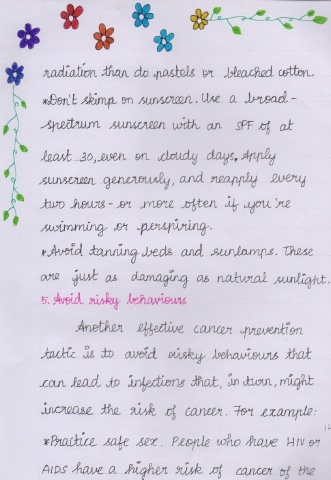 radiation than do pastels or bleached cotton.
*Don't skimp on sunscreen. Use a broad-
spectrum sunscreen with an SPF of at
least 30, even on cloudy days. Apply
sunscreen generously, and reapply every
two hours - or more often if you're
swimming or perspiring.
*Avoid tanning beds and sunlamps. These
are just as damaging as natural sunlight.
5. Avoid risky behaviours
Another effective cancer prevention
tactic is to avoid risky behaviours that
can lead to infections that, in turn, might
increase the risk of cancer. For example:
*Practice safe sex. People who have HIV or
AIDS have a higher risk of cancer of the